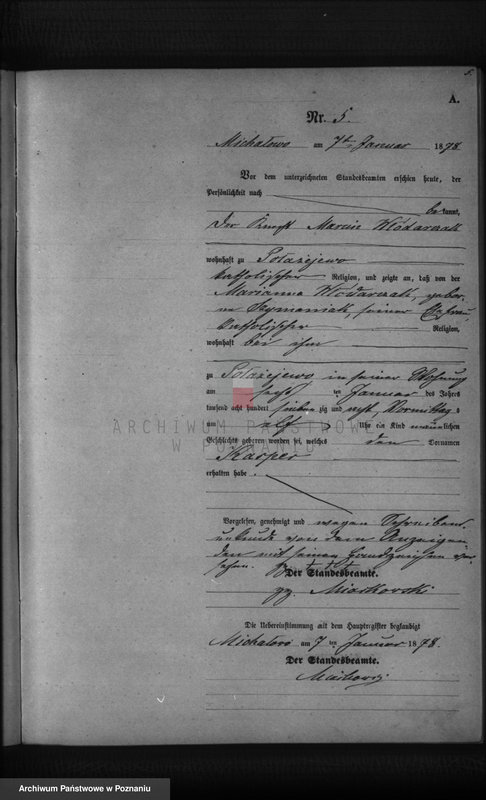 5.
A.
Nr. 5.
Michałowo am 7ten Januar 1878
Vor dem unterzeichneten Standesbeamten erschien heute, der
Persönlichkeit nach
bekannt,
Der Knecht Marcin Włódarczak
wohnhaft zu Polażejewo
katholischer Religion, und zeigte an, daß von der
Marianna Włódarczak, gebor-
ne Szymaniak, seiner Ehefrau,
katholischer Religion,
wohnhaft bei ihm
zu Polażejewo in seiner Wohnung
am sechs ten Januar des Jahres
tausend acht hundert sieben zig und acht, Vormittags
um elf Uhr ein Kind männlichen
Geschlechts geboren worden sei, welches den Vornamen
Kasper
erhalten habe.
Vorgelesen, genehmigt und wegen Schreibens-
unkunde von dem Anzeigen-
den mit seinem Handzeichen ver-
sehen. + + +
Der Standesbeamte.
gez. Miaskowski
Die Uebereinstimmung mit dem Hauptregister beglaubigt
Michałowo am 7 ten Januar 1878.
Der Standesbeamte.
ARCHIWUM PAŃSTWOWE
W POZNANIU
Archiwum Państwowe w Poznaniu